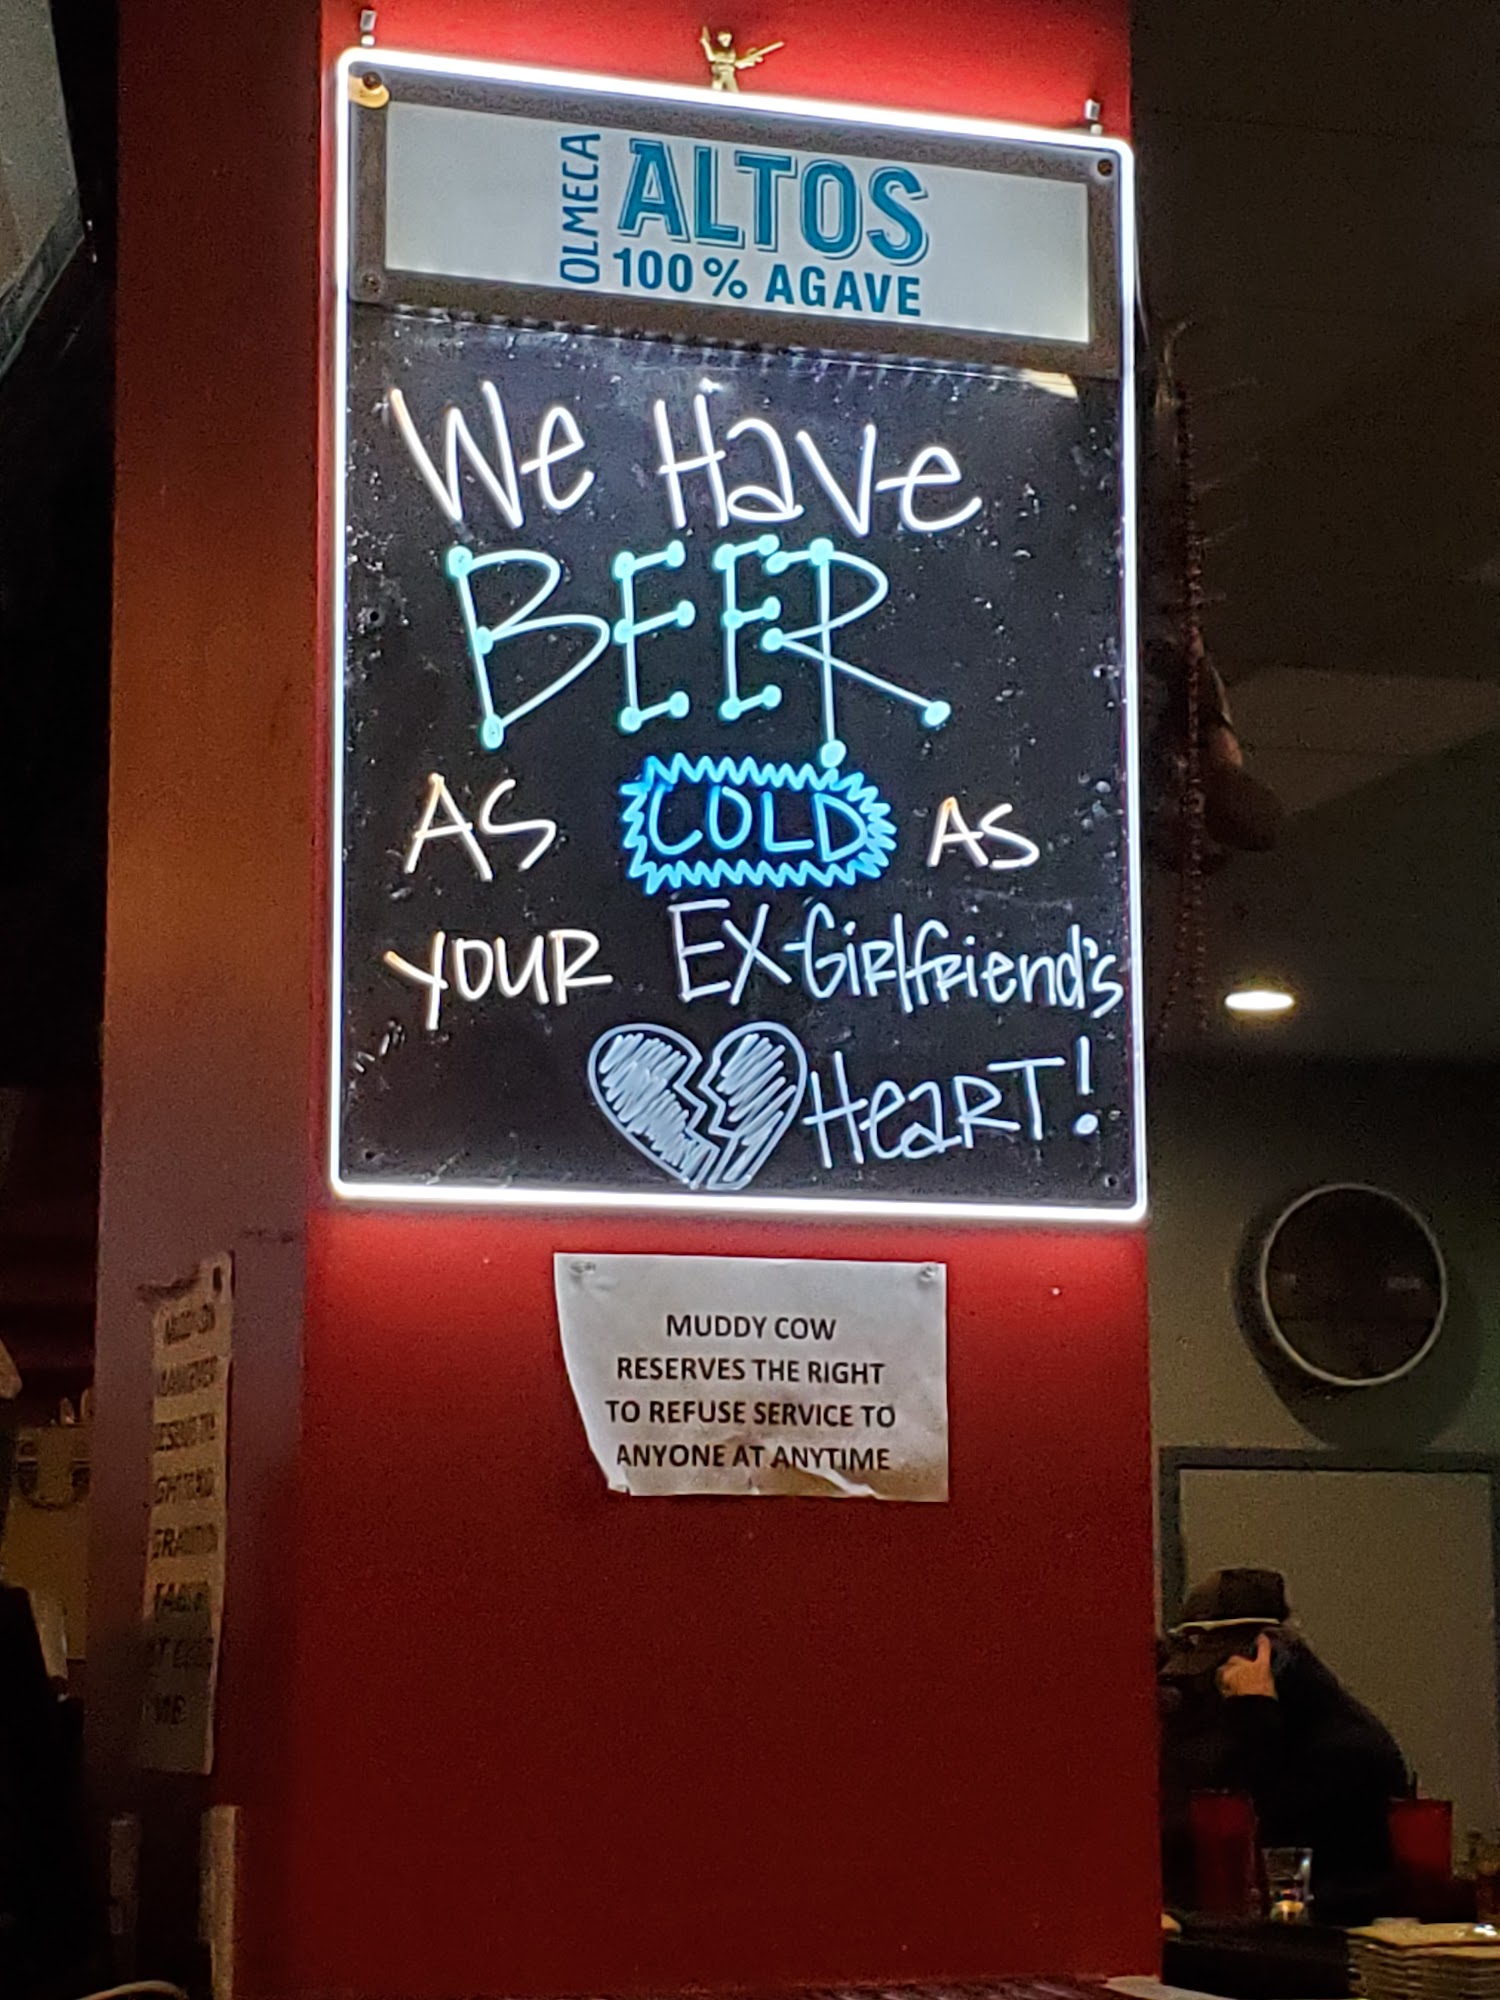 OLMECA
ALTOS
100% AGAVE
We Have
BEER
AS COLD AS
YOUR EX-Girlfriend's
HeaRT!
MUDDY COW
RESERVES THE RIGHT
TO REFUSE SERVICE TO
ANYONE AT ANYTIME